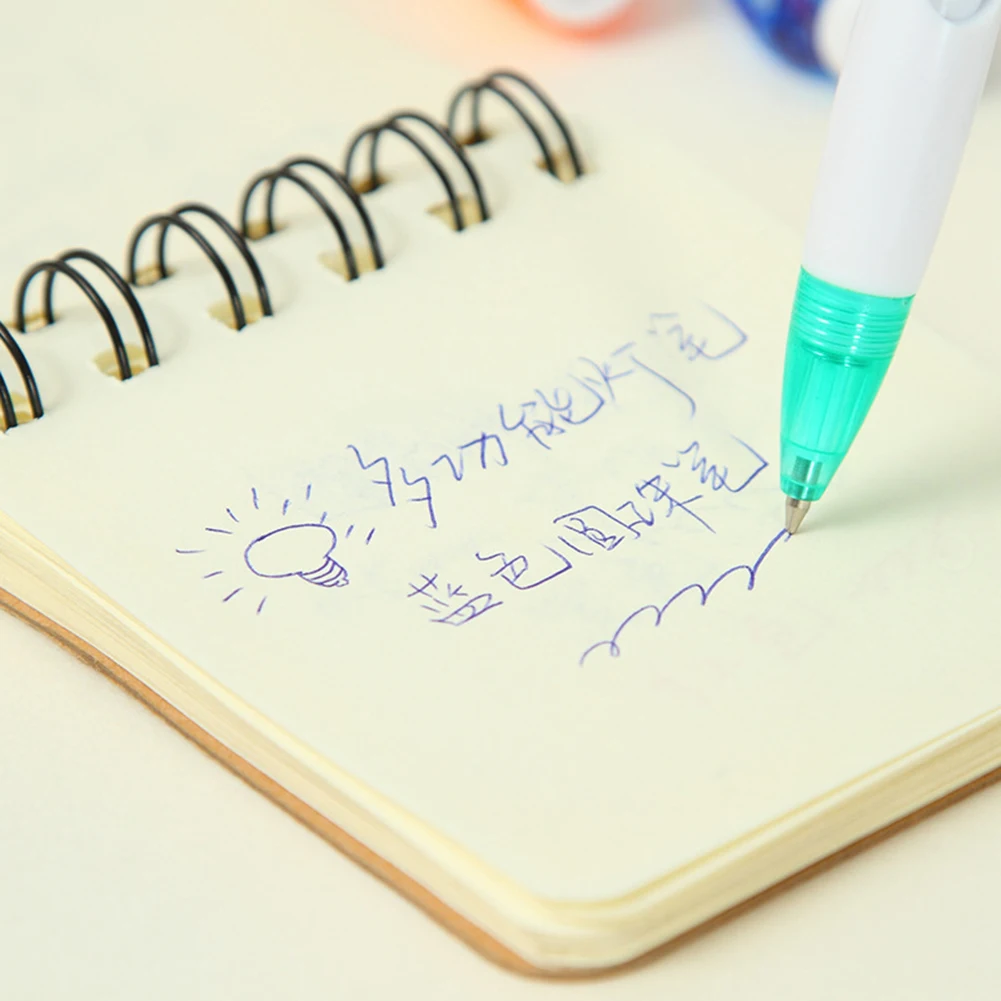 多功能灯笔
蓝色圆珠笔